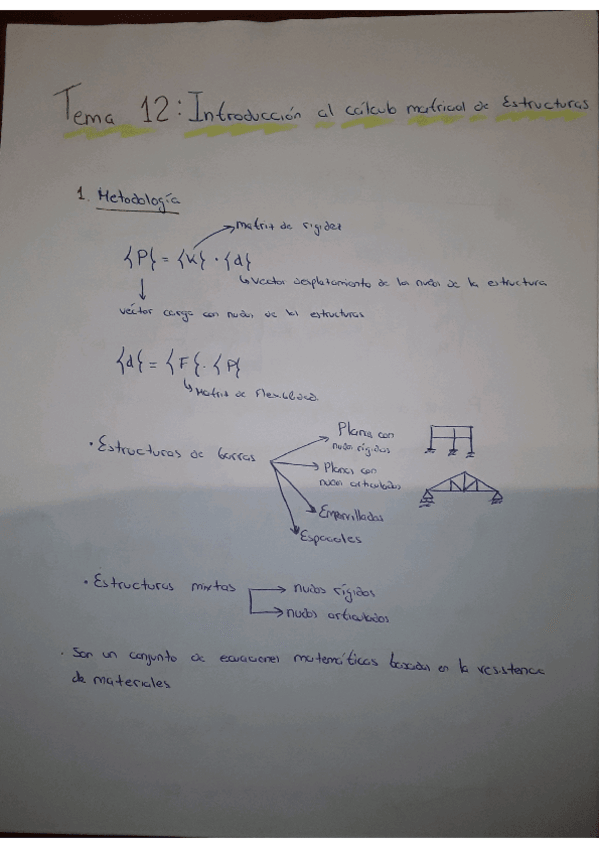 Tema 12: Introducción al cálculo matricial de Estructuras
1. Metodología
matriz de rigidez
{P} = {K} · {d}
vector desplazamiento de los nudos de la estructura
véctor carga con nudos de la estructuras
{d} = {F} · {P}
Matriz de flexibilidad
· Estructuras de barras
Planas con
nudos rígidos
Planas con
nudos articulados
Emparrillados
Espaciales
· Estructuras mixtas
nudos rígidos
nudos articulados
· Son un conjunto de ecuaciones matemáticas basadas en la resistencia
de materiales